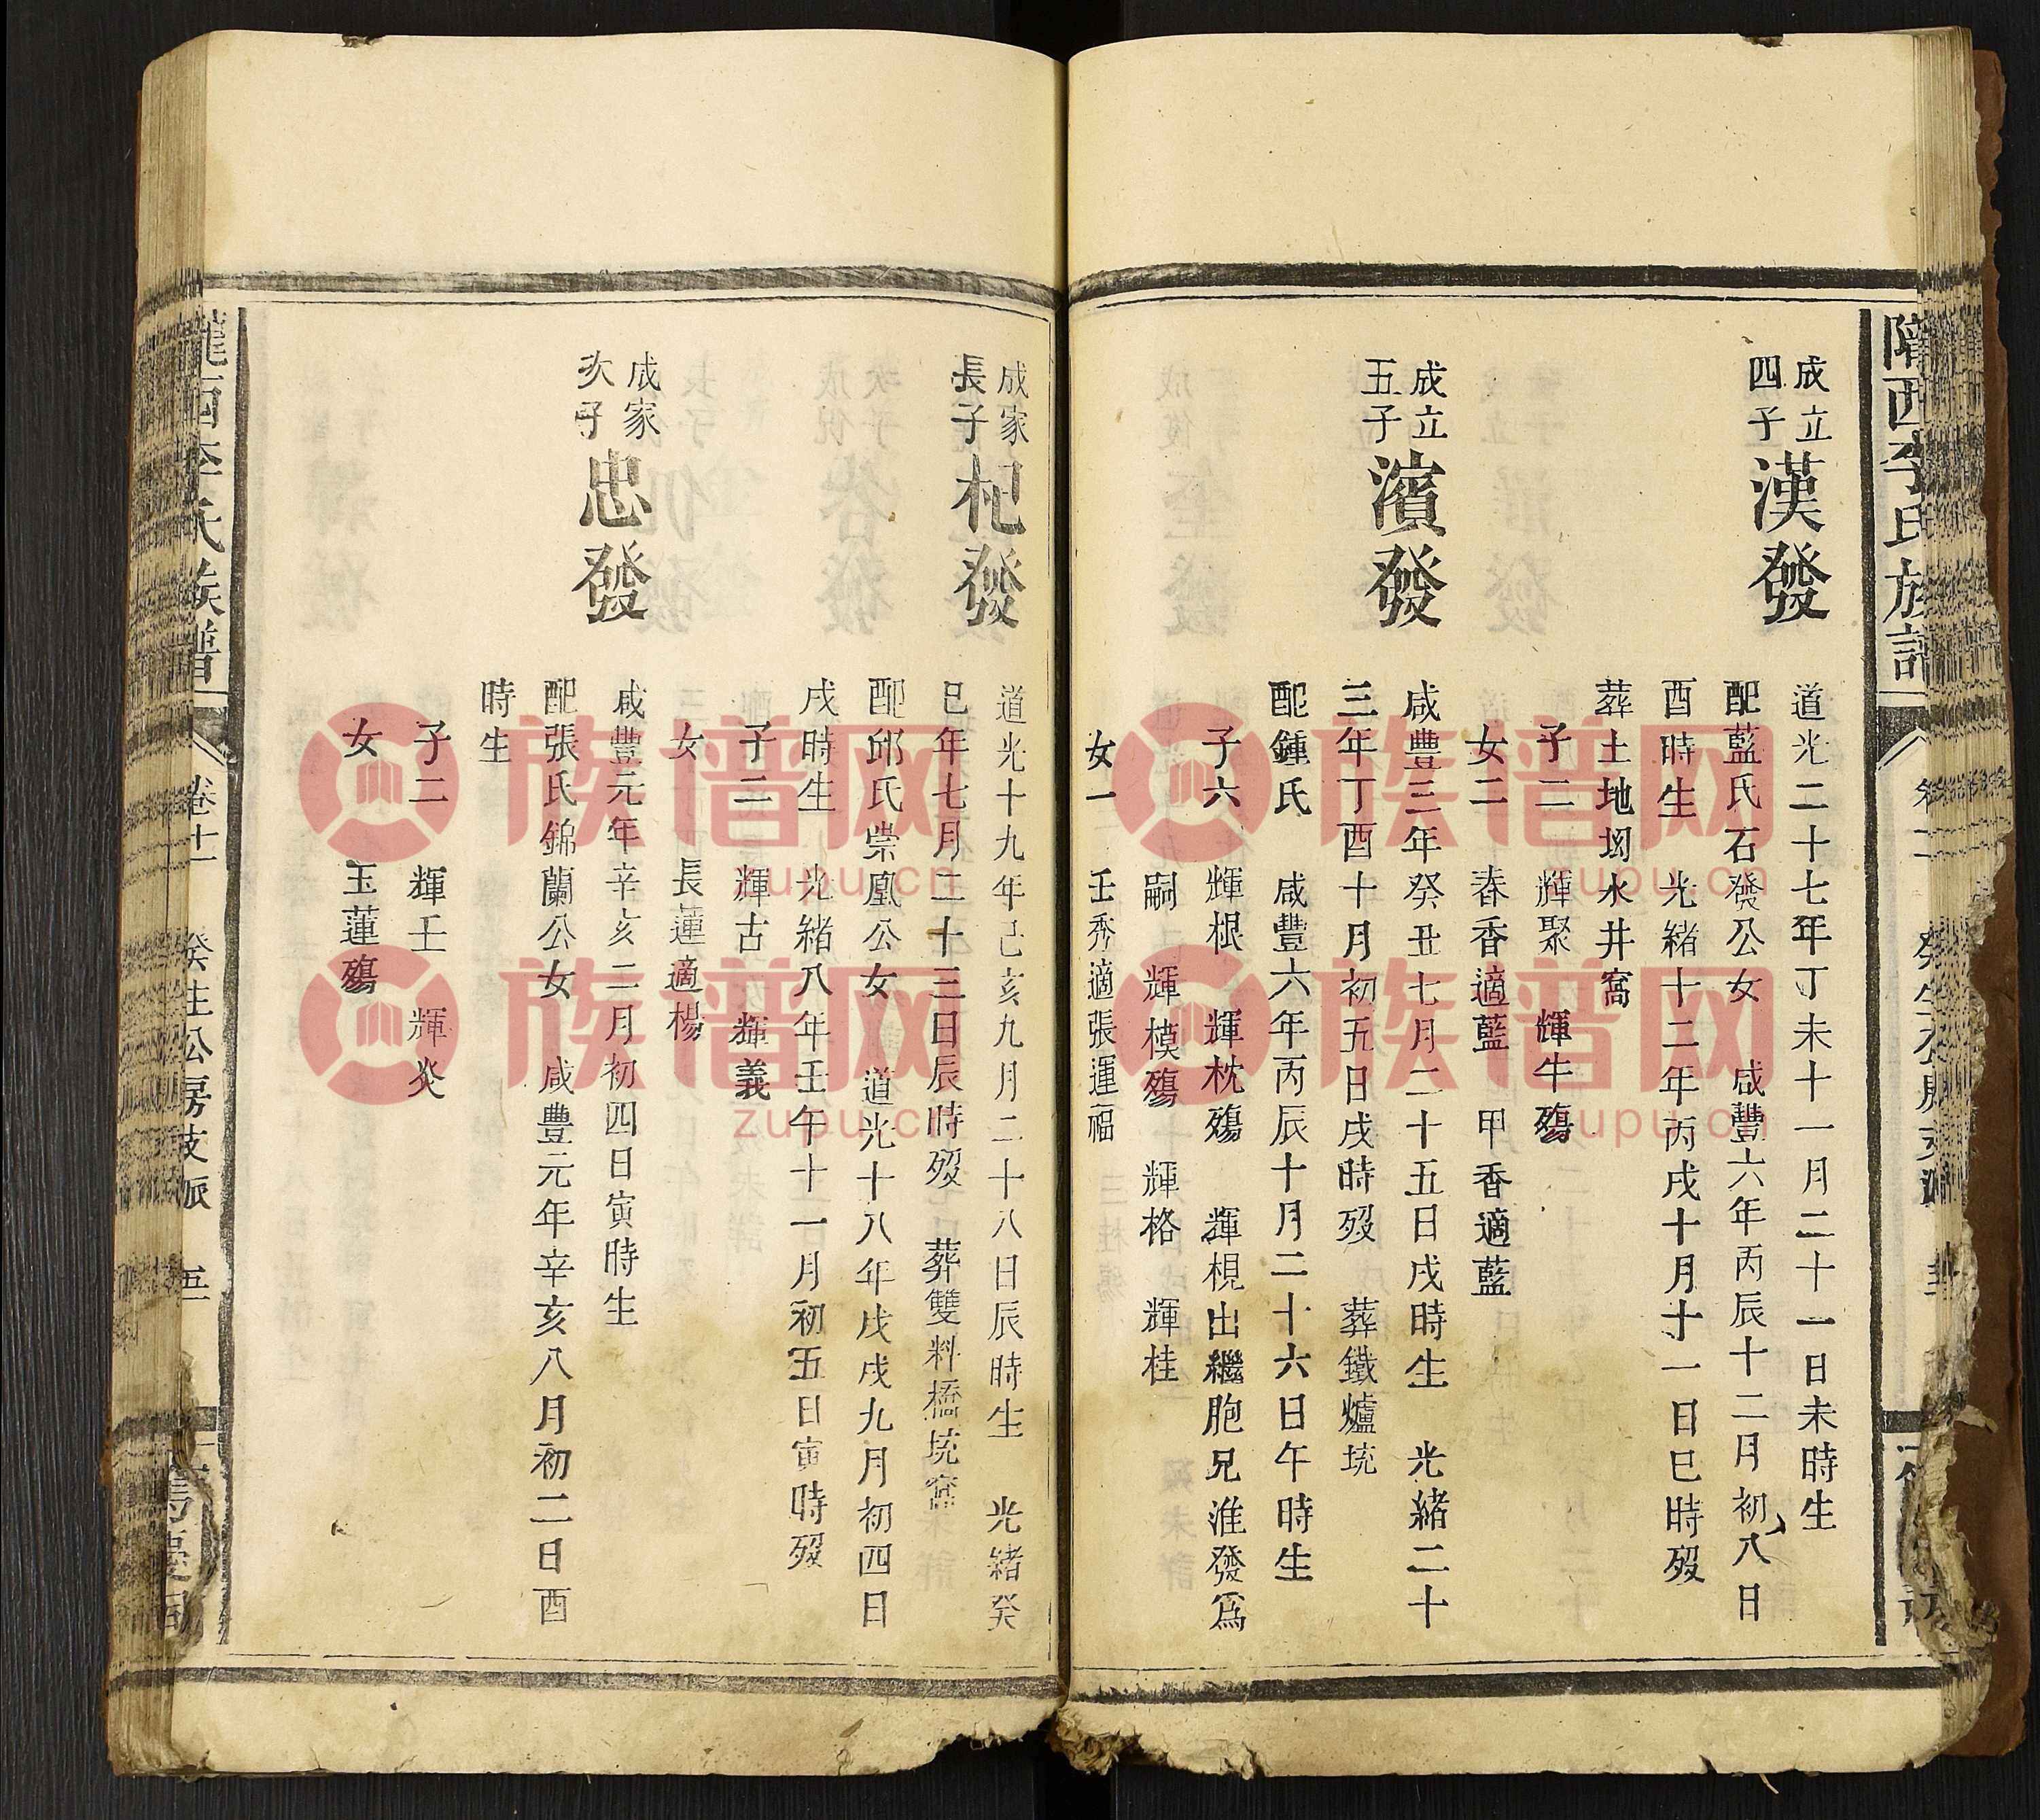 隴西李氏族譜
成立
四子
漢發
道光二十七年丁未十一月二十一日未時生
配藍氏石發公女 咸豐六年丙辰十二月初八日
酉時生 光緒十二年丙戌十月十一日巳時歿
葬土地坳水井窩
子二 輝聚 輝牛殤
女二 春香適藍 甲香適藍
成立
五子
濱發
咸豐三年癸丑七月二十五日戌時生 光緒二十
三年丁酉十月初五日戌時歿 葬鐵爐坑
配鍾氏 咸豐六年丙辰十月二十六日午時生
子六 輝根 輝枕殤 輝梘出繼胞兄淮發為
嗣 輝模殤 輝格 輝桂
女一 壬秀適張運福
成家
長子
杞發
道光十九年己亥九月二十八日辰時生 光緒癸
巳年七月二十三日辰時歿 葬雙料橋坑窩
配邱氏崇凰公女 道光十八年戊戌九月初四日
戌時生 光緒八年壬午十一月初五日寅時歿
子二 輝古 輝義
女 長蓮適楊
成家
次子
忠發
咸豐元年辛亥二月初四日寅時生
配張氏錦蘭公女 咸豐元年辛亥八月初二日酉
時生
子二 輝壬 輝炎
女 玉蓮殤
隴西李氏族譜
卷十一
癸生公房支派
五
族谱网
zupu.cn
族谱网
zupu.cn
族谱网
zupu.cn
族谱网
zupu.cn